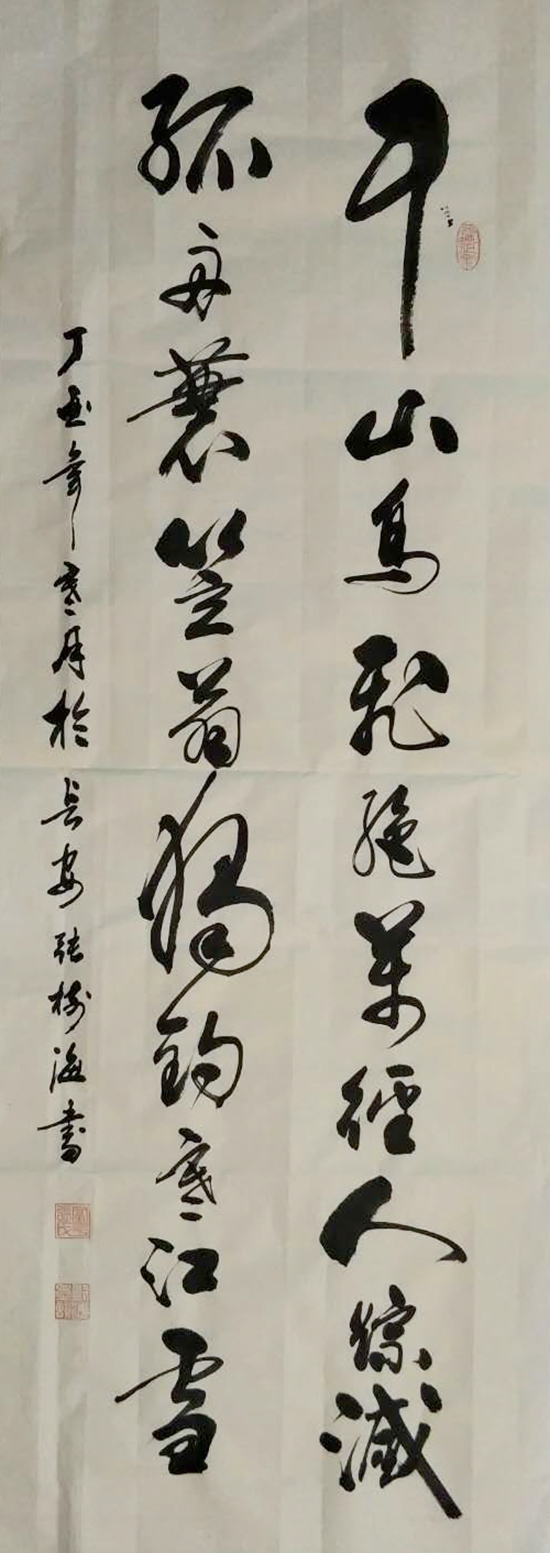 千山鳥飛絕萬徑人踪滅
孤舟蓑笠翁獨釣寒江雪
丁酉年寒月於長安張樹海書